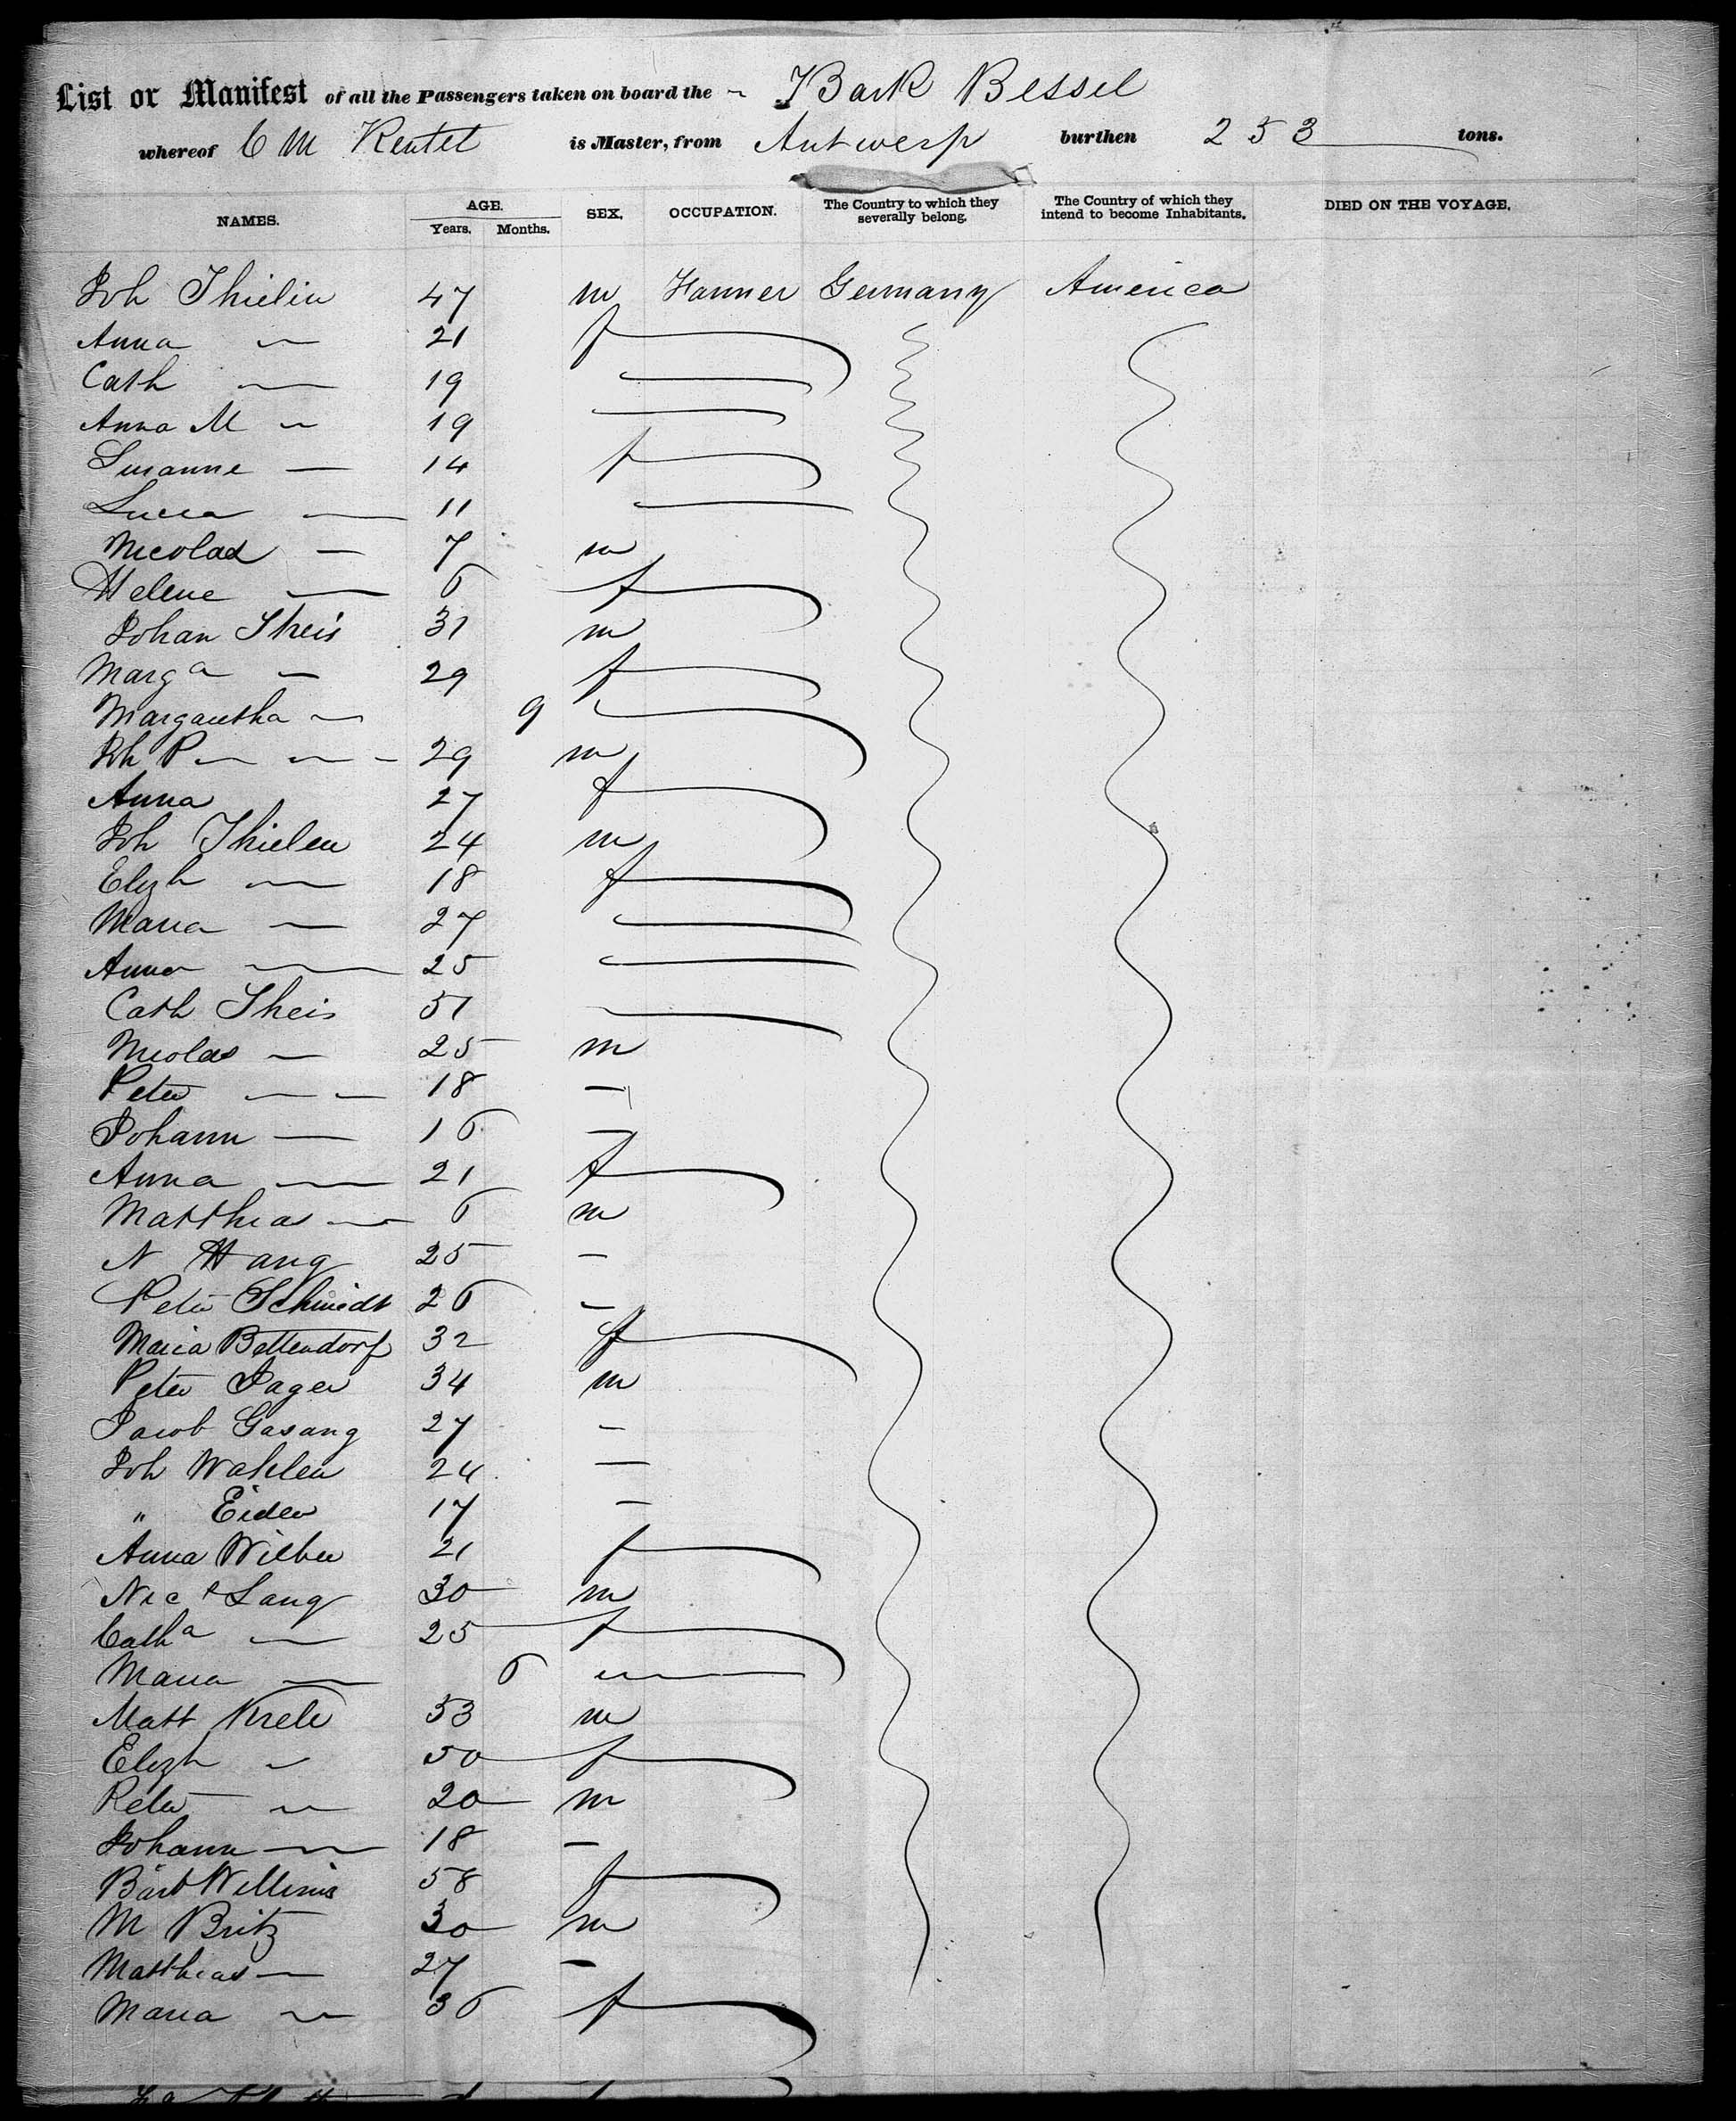 List or Manifest of all the Passengers taken on board the Bark Bessel
whereof C M is Master, from Antwerp burthen 253 tons.
NAMES. AGE. SEX. OCCUPATION. The Country to which they severally belong. The Country of which they intend to become Inhabitants. DIED ON THE VOYAGE.
Years. Months.
Joh Thielin 47 m Farmer Germany America
Anna — 21 f
Cath — 19
Anna M — 19
Susanne — 14 f
Lucia — 11
Nicolas — 7 m
Helene — 6 f
Johan Theis 31 m
Marga — 29 f
Margaretha — 9
Joh P — — 29 m
Anna 27 f
Joh Thielen 24 m
Elizh — 18 f
Maria — 27
Anna — 25
Cath Theis 51
Nicolas — 25 m
Peter — — 18 —
Johann — 16 —
Anna — 21 f
Matthias — 6 m
N Hang 25 —
Peter Schmidt 26 —
Maria Bettendorf 32 f
Peter Jager 34 m
Jacob Gasang 27 —
Joh Wahlen 24 —
" Eider 17 —
Anna Wilber 21 f
Nic Lang 30 m
Catha — 25 f
Maria — 6 —
Matt 53 m
Elizh — 50 f
Peter — 20 m
Johann — 18 —
Barb 58 f
M Britz 30 m
Matthias — 27 —
Maria — 36 f